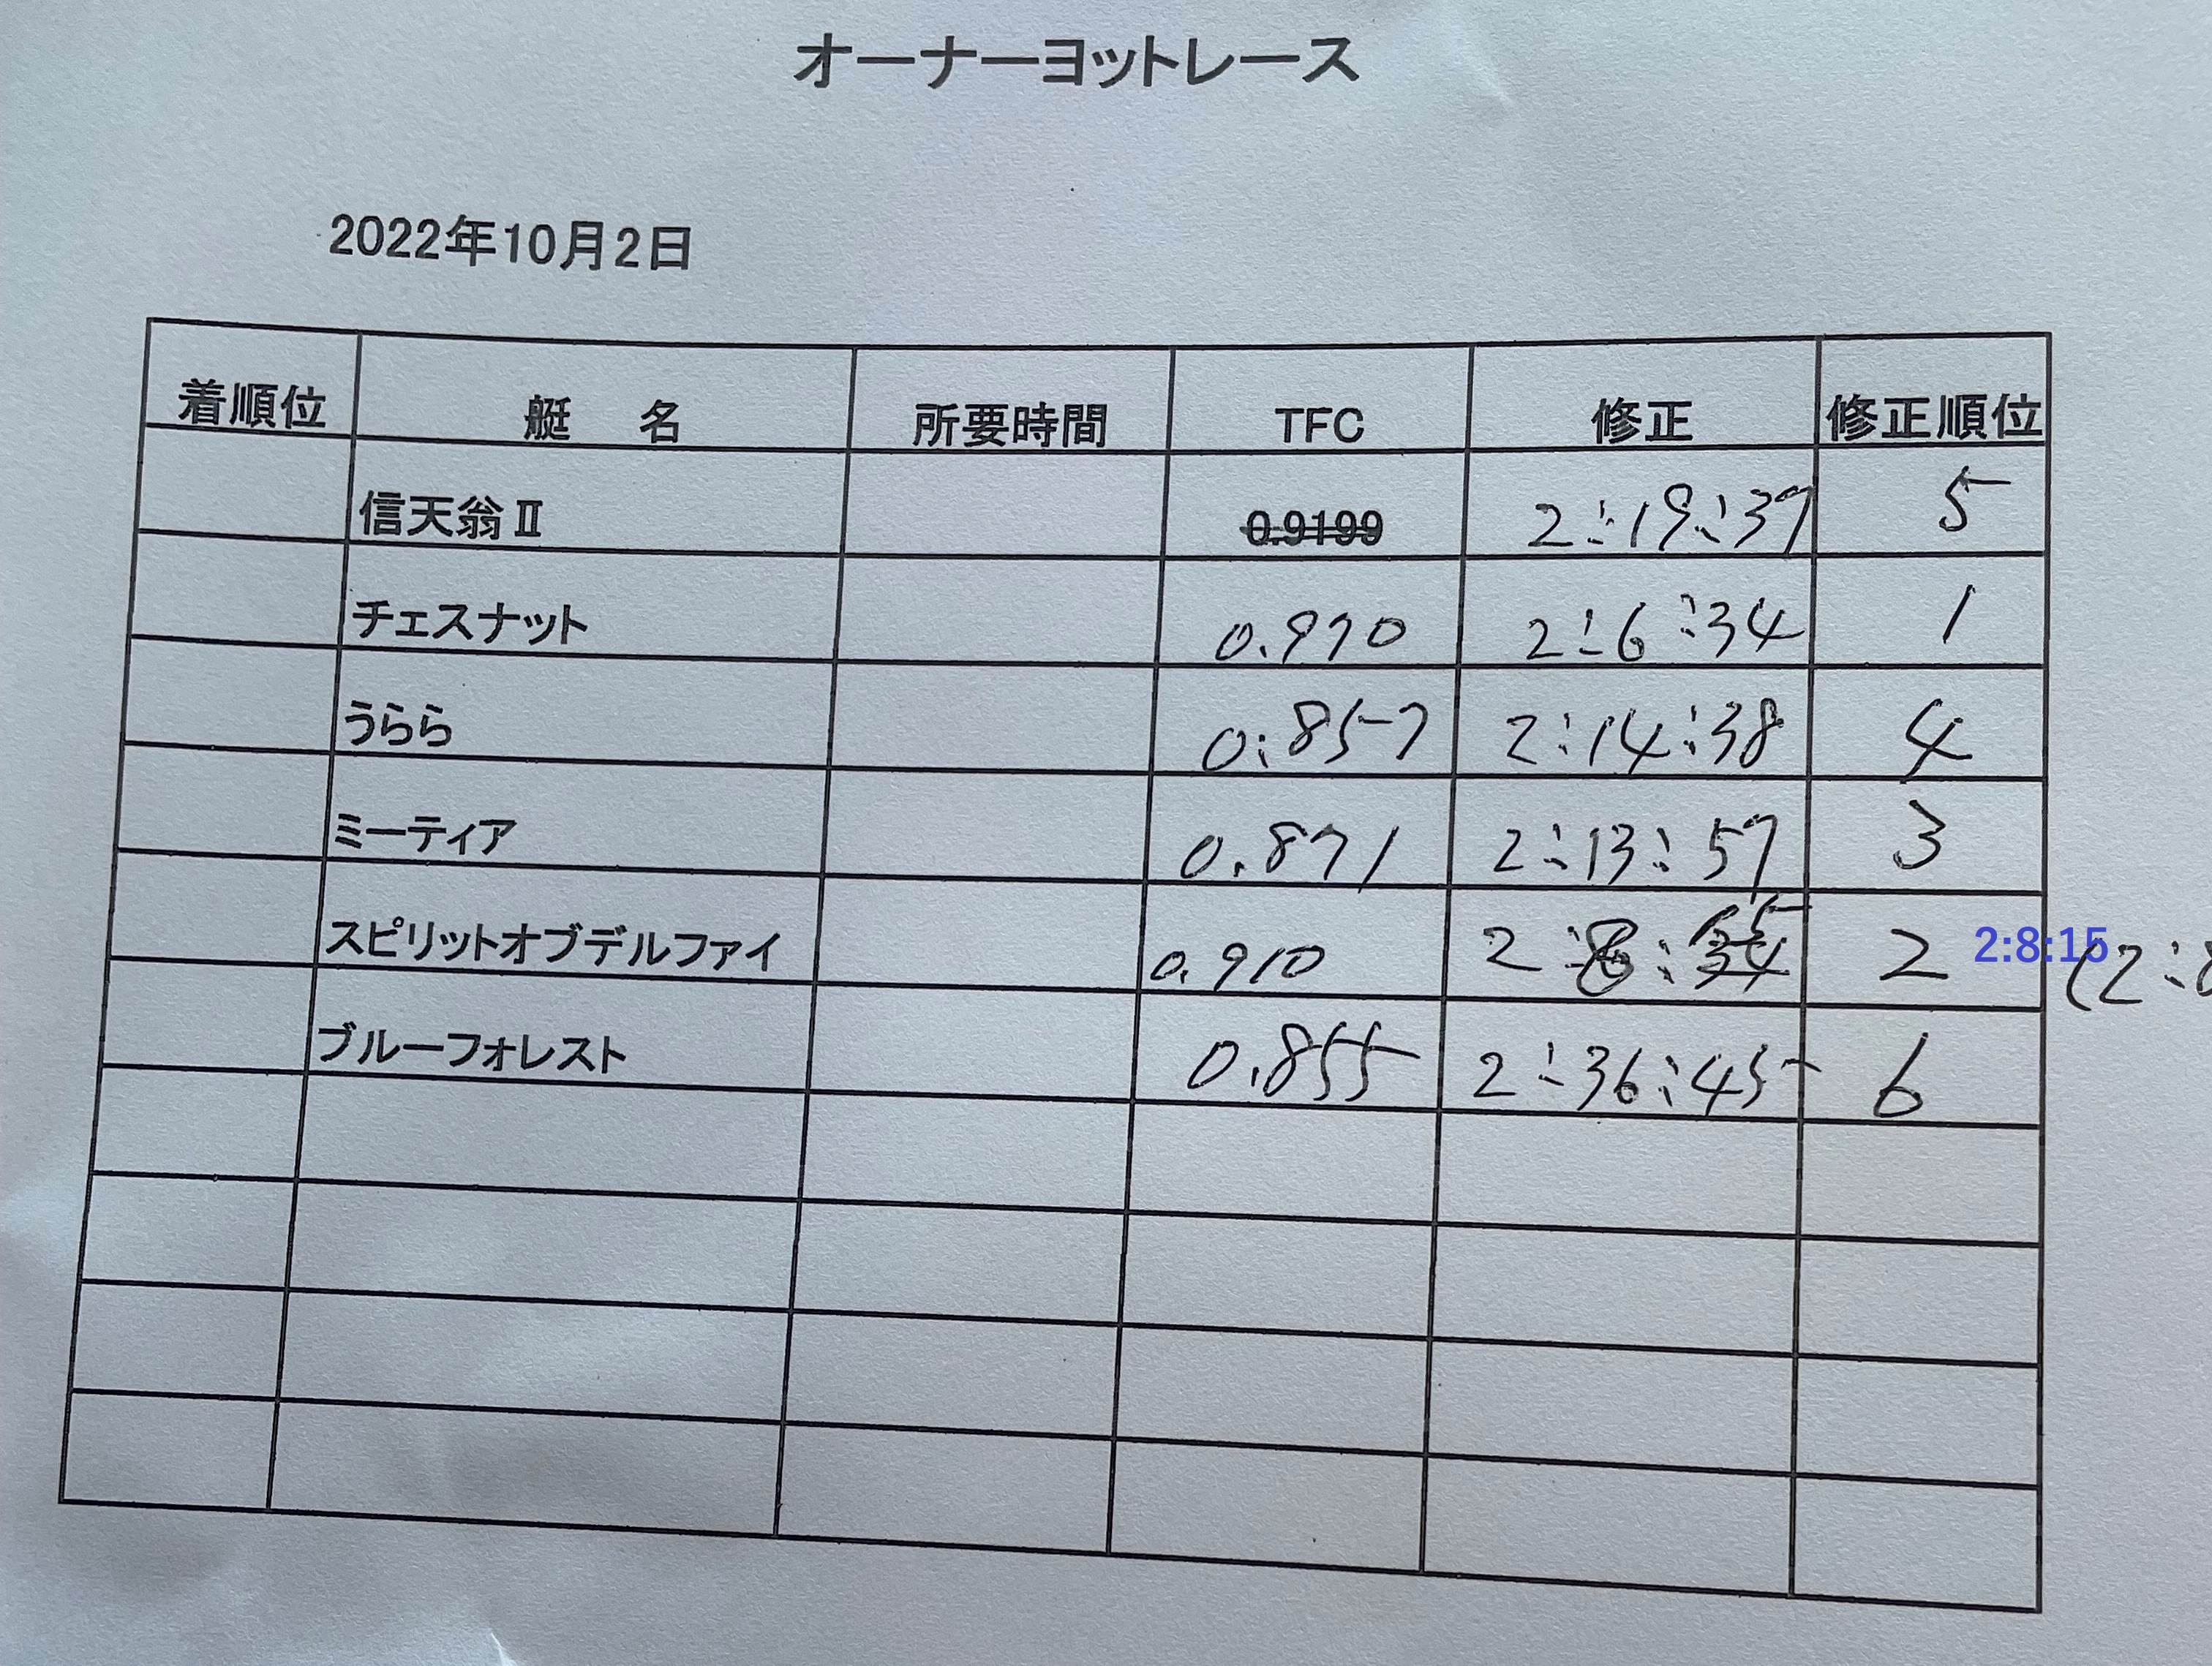 オーナーヨットレース
2022年10月2日
着順位 艇 名 所要時間 TFC 修正 修正順位
信天翁Ⅱ 0.9199 2:19:37 5
チェスナット 0.970 2:6:34 1
うらら 0:857 2:14:38 4
ミーティア 0.871 2:13:57 3
スピリットオブデルファイ 0.910 2:8: 2 2:8:15 (2:8
ブルーフォレスト 0.855 2:36:45 6